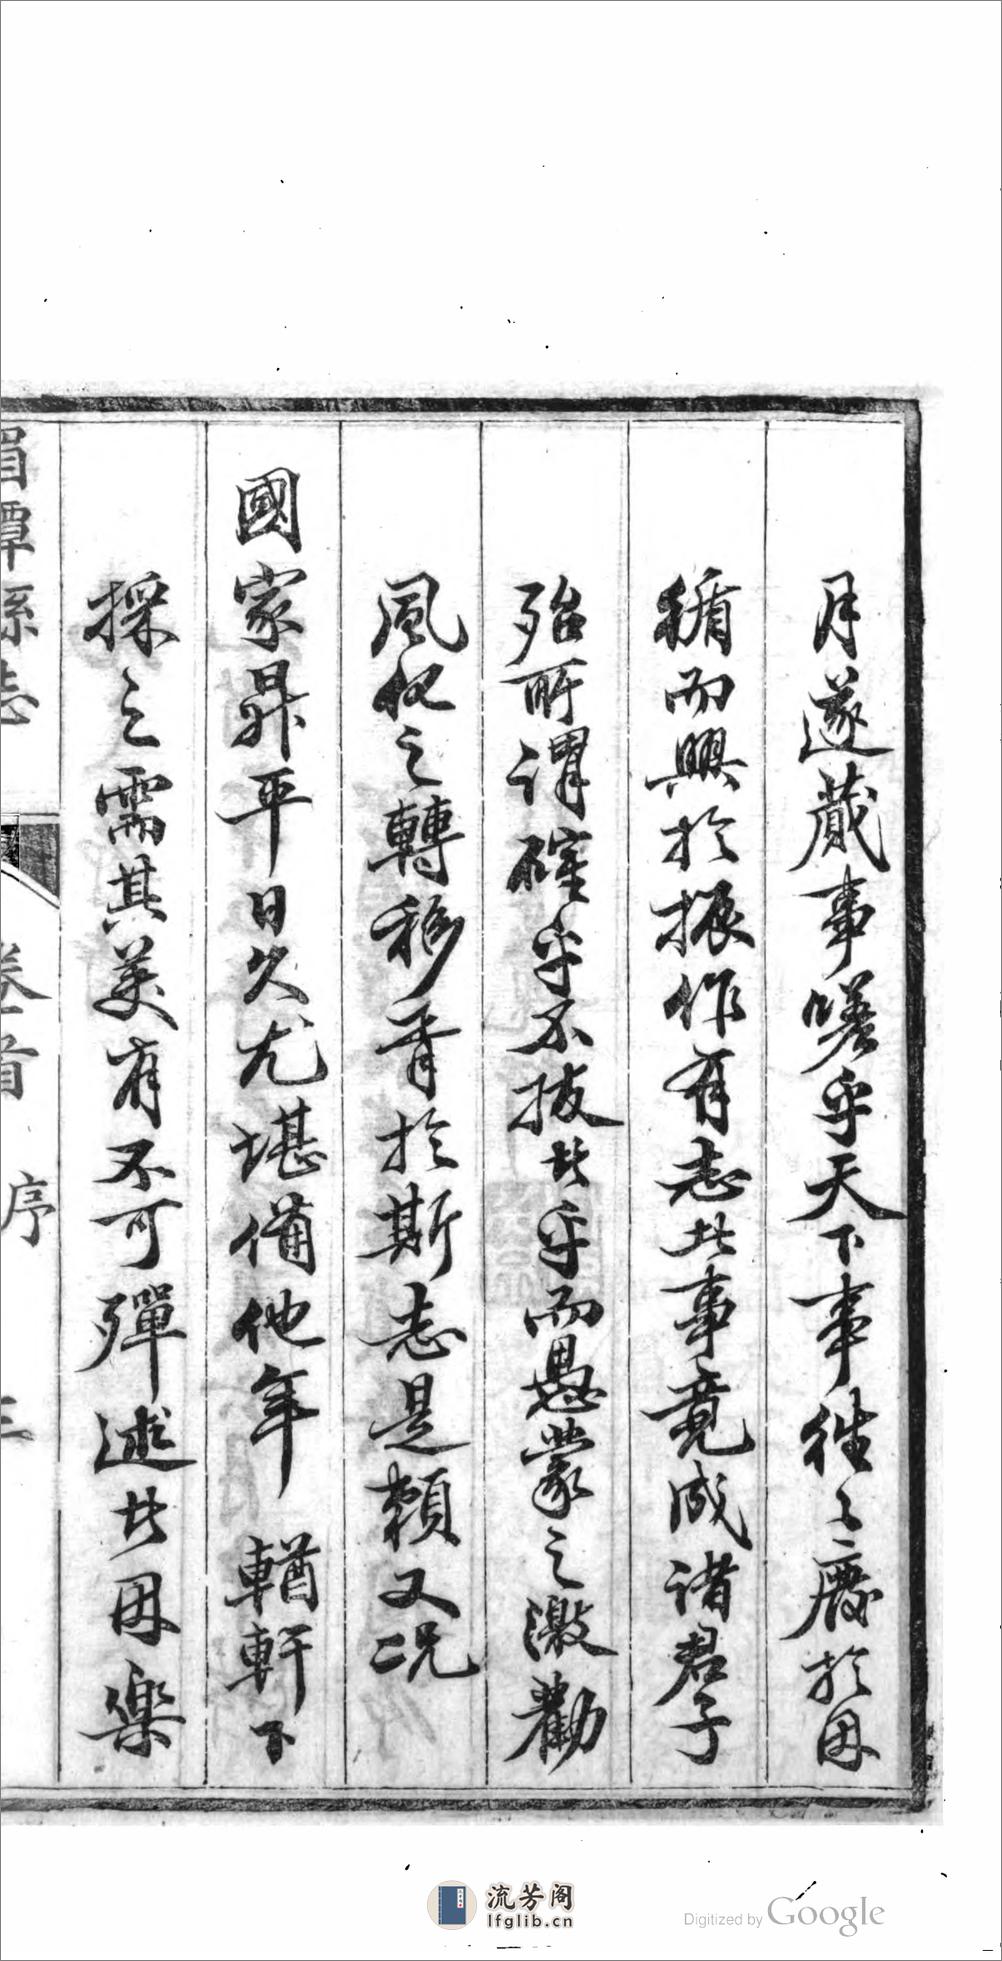 月遂蕆事嗟乎天下事往〻廢於因
循而興於振作有志此事竟成諸君子
殆所謂確乎不拔者乎而愚蒙之激勸
風化之轉移胥於斯志是賴又況
國家昇平日久尤堪備他年　輶軒下
採之需其美有不可殫述者因樂
湄潭縣志　卷首　序　三
流芳阁
lfglib.cn
Digitized by Google